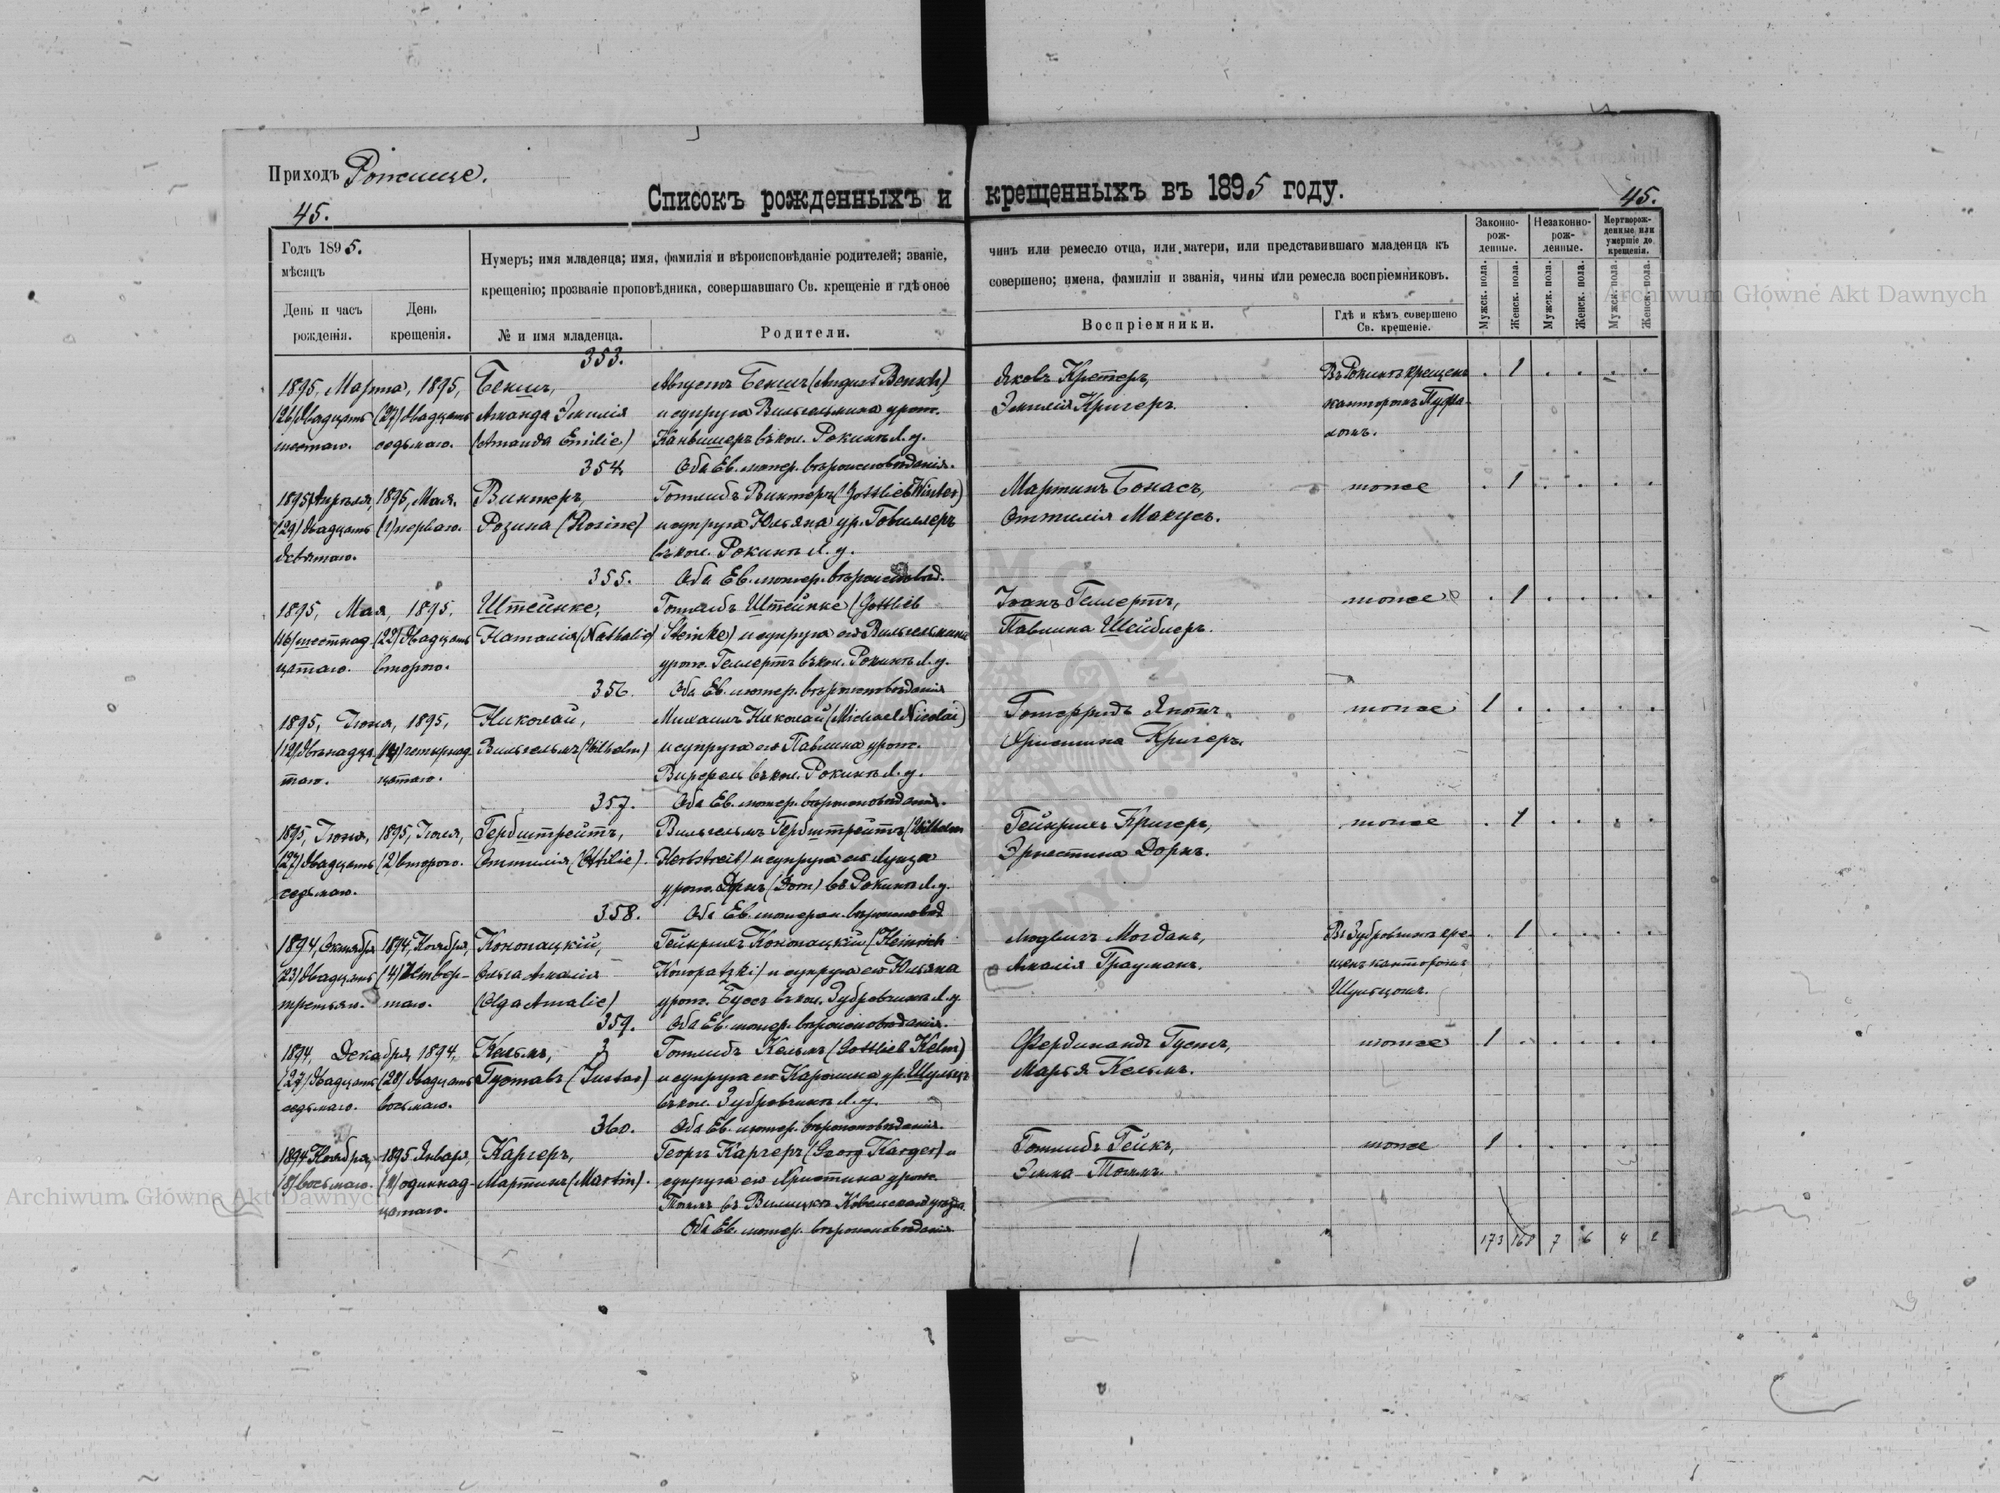 Приходъ Рожище.
45.
Списокъ рожденныхъ и крещенныхъ въ 1895 году.
45.
Годъ 1895.
мѣсяцъ
День и часъ рожденія.
День крещенія.
Нумеръ; имя младенца; имя, фамилія и вѣроисповѣданіе родителей; званіе, чинъ или ремесло отца, или матери, или представившаго младенца къ
крещенію; прозваніе проповѣдника, совершавшаго Св. крещеніе и гдѣ оное совершено; имена, фамиліи и званія, чины или ремесла воспріемниковъ.
№ и имя младенца.
Родители.
Воспріемники.
Гдѣ и кѣмъ совершено Св. крещеніе.
Законно-рож-денные.
Незаконно-рож-денные.
Мертворож-денные или умершіе до крещенія.
Мужск. пола.
Женск. пола.
Мужск. пола.
Женск. пола.
Мужск. пола.
Женск. пола.
353.
1895, Марта, 1895, Бекшъ, Августъ Бекшъ (August Bensch) Яковъ Кретеръ, Въ Рокинѣ крещенъ . 1 . . . .
(26) двадцать (27) двадцать Аманда Эмилія и супруга Вильгельмина урож. Эмилія Кригеръ. канторомъ
шестаго. седьмаго. (Amanda Emilie) въ кол. Рокинѣ Л. у.
354. Оба Ев. лютер. вѣроисповѣданія.
1895, Апрѣля, 1895, Мая, Винтеръ, Готлибъ Винтеръ (Gottlieb Winter) Мартинъ Бонасъ, тоже . 1 . . . .
(29) двадцать (1) перваго. Розина (Rosine) и супруга Юльяна ур. Говиллеръ Оттилія Макусъ.
девятаго. въ кол. Рокинѣ Л. у.
355. Оба Ев. лютер. вѣроисповѣд.
1895, Мая, 1895, Штейнке, Готлибъ Штейнке (Gottlieb Іоанъ Геллертъ, тоже . 1 . . . .
(16) шестнад (22) двадцать Наталія (Nathalie) Steinke) и супруга его Вильгельмина Павлина Шейблеръ.
цатаго. втораго. урож. Геллертъ въ кол. Рокинѣ Л. у.
356. Оба Ев. лютер. вѣроисповѣданія
1895, Іюня, 1895, Николай, Михаилъ Николай (Michael Nicolai) Готфридъ тоже 1 . . . . .
(12) двѣнадца (14) четырнад Вильгельмъ (Wilhelm) и супруга его Павлина урож. Христина Кригеръ.
таго. цатаго. въ кол. Рокинѣ Л. у.
357. Оба Ев. лютер. вѣроисповѣданія.
1895, Іюня, 1895, Іюля, Гербштрейтъ, Вильгельмъ Гербштрейтъ (Wilhelm Гейнрихъ Кригеръ, тоже . 1 . . . .
(27) двадцать (2) втораго. Оттилія (Ottilie). Herbstreit) и супруга его Луиза Эрнестина Дорнъ.
седьмаго. урож. Дорнъ (Dorn) въ Рокинѣ Л. у.
358. Оба Ев. лютеран. вѣроисповѣд
1894, Октября 1894, Ноября, Конопацкій, Гейнрихъ Конопацкій (Heinrich Людвигъ Могданъ, Въ Зубровщинѣ кре- . 1 . . . .
(23) двадцать (4) четвер- Ольга Амалія Konopatzki) и супруга его Юльяна Амалія Грауманъ. щенъ канторомъ
третьяго. таго. (Olga Amalie) урож. Буссъ въ кол. Зубровщинѣ Л. у. Шульцомъ.
359. Оба Ев. лютер. вѣроисповѣданія.
1894, Декабря, 1894, Кельмъ, Готлибъ Кельмъ (Gottlieb Kelm) Фердинандъ Густъ, тоже 1 . . . . .
(27) двадцать (28) двадцать Густавъ (Gustav) и супруга его Каролина ур. Шульцъ Марья Кельмъ.
седьмаго. восьмаго. въ кол. Зубровщинѣ Л. у.
360. Оба Ев. лютер. вѣроисповѣданія.
1894 Ноября, 1895 Января, Каргеръ, Георгъ Каргеръ (Georg Karger) и Готлибъ Гейнъ, тоже 1 . . . . .
(8) восьмаго. (11) одиннад- Мартинъ (Martin). супруга его Христина урож. Эмма
цатаго. въ Ковельскаго уѣзда.
Оба Ев. лютер. вѣроисповѣданія
173 168 7 6 4 2
Archiwum Główne Akt Dawnych
Archiwum Główne Akt Dawnych